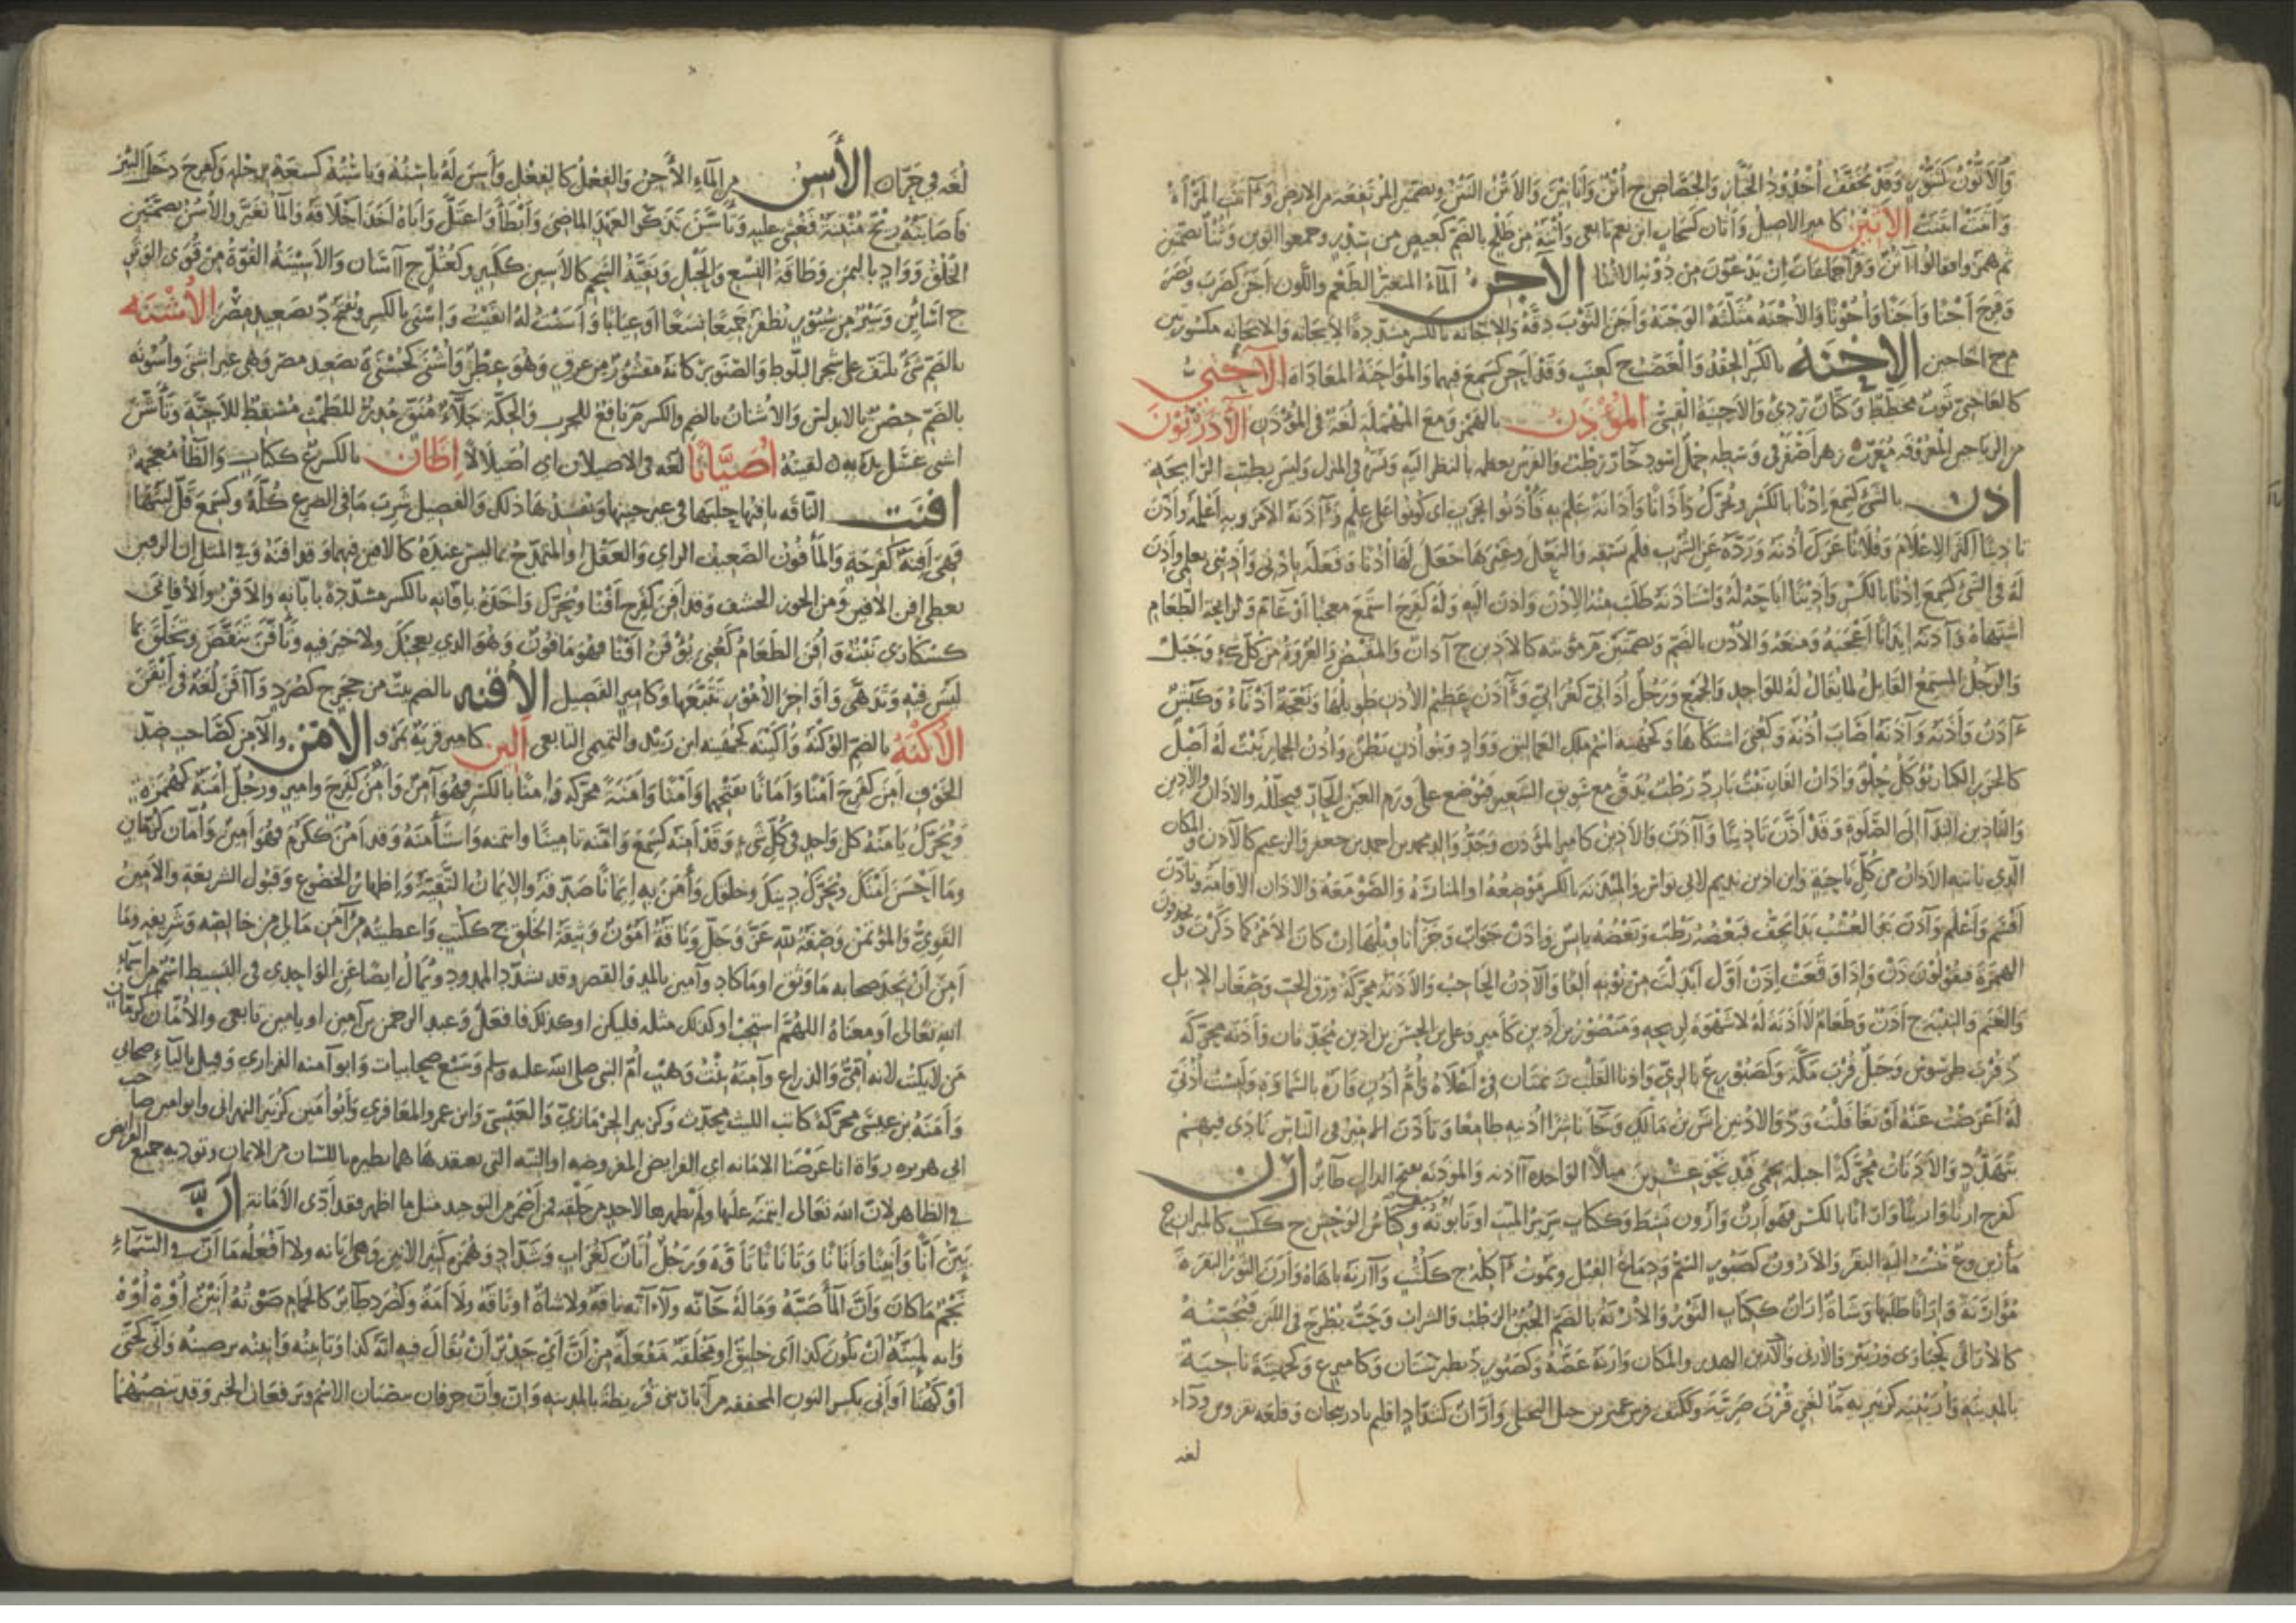 والأتون كتنور وقد يخفف أخدود الخباز والجصاص ج أتن وأتاتين والأتن
وأتنت اتننت الأثين كامير الاصيل وأثان كسحاب ابن نعيم تابعي وأثنة من طلح بالضم كعيص من سدر وجمعوا الوثن وثنا بضمتين
ثم همزوا فقالوا أثن وقرأ جماعات إن يدعون من دونه الا أثنا الآجن الماء المتغير الطعم واللون أجن كضرب ونصر
وفرح أجنا وأجنا وأجونا والأجنة مثلثة الوجنة وأجن الثوب دقه والاجانة بالكسر مشددة والايجانة والانجانة مكسورتين
ج اجاجين الإحنة بالكسر الحقد والغضب ج كعنب وقد أحن كسمع فيهما والمؤاحنة المعاداة الآخني
كالعاخني ثوب مخطط وكتان ردي والآخنية القسي المؤدن بالهمز ومع المهملة لغة في المؤذن الآذريون
من الرياحين المعروفة معرب زهر أصفر في وسطه خمل اسود حار رطب والفرس يعظمه بالنظر اليه ونثره في المنزل وليس بطيب الرائحة
أذن بالشيء كسمع إذنا بالكسر ويحرك وأذانا وأذانة علم به فأذنوا بحرب اي كونوا على علم وآذنه الأمر وبه أعلمه وأذن
تأذينا أكثر الإعلام وفلانا عرك أذنه ورده عن الشرب فلم يسقه والنعل وغيرها جعل لها أذنا وفعله باذني وأذيني بعلمي وأذن
له في الشيء كسمع إذنا بالكسر وأذينا أباحه له واستأذنه طلب منه الإذن وأذن اليه وله كفرح استمع معجبا أو عام ولرائحة الطعام
اشتهاه وآذنه إيذانا أعجبه ومنعه والأذن بالضم وبضمتين م مؤنثة كالأذين ج آذان والمقبض والعروة من كل شيء وجبل
والرجل المستمع القابل لما يقال له للواحد والجمع ورجل أذاني كغرابي وآذن عظيم الأذن طويلها ونعجة أذناء وكبش
آذن وأذنه وآذنه أصاب أذنه وكعني اشتكاها وكجهينة اسم ملك العماليق وواد وبنو أذن بطن وأذن الحمار نبت له أصل
كالجزر الكبار يؤكل حلو وآذان الفار نبت بارد رطب يدق مع سويق الشعير فيوضع على ورم العين الحار فيحلله والأذان والأذين
والتأذين النداء إلى الصلوة وقد أذن تأذينا وآذن والأذين كامير المؤذن وجد والد محمد بن احمد بن جعفر والزعيم كالآذن والمكان
الذي ياتيه الأذان من كل ناحية وابن أذين نديم لابي نواس والمئذنة بالكسر موضعه او المنارة والصومعة والاذان الاقامة وتأذن
أقسم وأعلم وآذن العشب بدا يجف فبعضه رطب وبعضه يابس وإذن جواب وجزاء تاويلها ان كان الأمر كما ذكرت ويحذفون
الهمزة فيقولون ذن وإذا وقفت على إذن أبدلت من نونه ألفا والآذن الحاجب والأذنة محركة ورق الحب وصغار الإبل
والغنم والتبنة ج أذن وطعام لا أذنة له لا شهوة لريحه ومنصور بن أذين كأمير وعلي بن الحسن بن أذين محدثان وأذنة محركة
د قرب طرسوس وجبل قرب مكة وكصبور ع بالري وأذنا القلب زنمتان في أعلاه وأم أذن قارة بالسماوة ولبست أذني
له أعرضت عنه أو تغافلت وذو الأذنين أنس بن مالك وجاء ناشرا أذنيه طامعا وتأذن الامير في الناس نادى فيهم
بتهدد والأذنات محركة أخيلة بحمى فيد نحو عشرين ميلا الواحدة أذنة والمؤذنة بفتح الذال طائر أرن
كفرح أرنا وأرينا وإرانا بالكسر فهو أرن وأرون نشط وككتاب سرير الميت او تابوته وكناس الوحش ج ككتب كالميران ج
مآرين وع تنسب اليه البقر والأرون كصبور السم ودماغ الفيل ويموت آكله ج ككتب وآرنه باهاه وأرن الثور البقرة
مؤارنة وإرانا طلبها وشاة إران ككتاب الثور والأرنة بالضم الجبن الرطب والشراب وحب يطرح في اللبن فيجبنه
كالأراني كحبارى وزبير والأرنى والأرين الهدير والمكان وأرنه عضه وكصبور د بطبرستان وكامير ع وكجهينة ناحية
بالمدينة
لغه
لغة في جرذان الأسن من الماء الآجن والفعل كالفعل وأسن له يأسنه ويأسنه كسعه برجله وكفرح دخل البئر
فأصابته ريح منتنة فغشي عليه وتأسن تذكر العهد الماضي وأبطأ واعتل وأباه أخذ أخلاقه والماء تغير والأسن بضمتين
الخلق وواد باليمن وطاقة النسع والحبل وبقية الشحم كالأسن ككتب وكعتل ج آسان والأسينة القوة من قوى الوتر
ج أسائن وسير من سيور تضفر جميعا نسعا أو عنانا وأسنت له ابقيت وإسنى بالكسر ويفتح د بصعيد مصر الأشنه
بالضم شيء يلتف على شجر البلوط والصنوبر كأنه مقشور من عرق وهو عطر وأشنى كحسنى ة بصعيد مصر وهي غير اسنى وأشونة
بالضم حصن بالاندلس والأشنان بالضم والكسر م نافع للجرب والحكة جلاء منق مدر للطمث مسقط للأجنة وتأشن
اشى غسل يده به لقيته أصيانا لغة في الاصيلان اي اصيلالا إظان بالكسر ع ككتاب والظاء معجمة
أفنت الناقة يافنها حلبها في غير حينها او يفسدها ذلك والفصيل شرب ما في الضرع كله وكسمع قل لبنها
فهي أفنة كفرحة والمأفون الضعيف الراي والعقل او المتمدح بما ليس عنده كالأفين فيهما وقد أفنه وفي المثل ان الرقين
يغطي أفن الأفين ومن الجوز الحشف وقد أفن كفرح أفنا ويحرك وأخذه بإفانه بالكسر مشددة بابانه والأفن والأفانى
كسكارى نبت وأفن الطعام كعني يؤفن أفنا فهو مأفون وهو الذي يعجبك ولا خير فيه وتأفن تنقص وتخلق بما
ليس فيه وتدهى وأواخر الأمور تتبعها وكامير الفصيل الأقنه بالضم بيت من حجر ج كصرد وأقن لغة في أيقن
الأكنه بالضم الوكنة وأكينة كجهينة ابن زيد والتميمي التابعي ألين كامير قرية بمرو الأمن والآمن كصاحب ضد
الخوف أمن كفرح أمنا وأمانا بفتحهما وأمنا وأمنة محركة وإمنا بالكسر فهو آمن وأمن كفرح وامير ورجل أمنة كهمزة
ويحرك يأمنه كل واحد في كل شيء وقد أمنه كسمع وأمنه تامينا وائتمنه واستأمنه وقد أمن ككرم فهو أمين وأمان كرمان
وما أحسن أمنك ويحرك دينك وخلقك وآمن به إيمانا صدقه والإيمان الثقة وإظهار الخضوع وقبول الشريعة والأمين
القوي والمؤتمن وصفة لله عز وجل وناقة أمون وثيقة الخلق ج ككتب واعطيته من آمن مالي من خالصه وشريفه وما
أمن أن يجد صحابة ما وثق او ما كاد وآمين بالمد والقصر وقد يشدد الممدود ويمال ايضا عن الواحدي في البسيط اسم من أسماء
الله تعالى أو معناه اللهم استجب أو كذلك مثله فليكن او كذلك فافعل وعبد الرحمن بن آمين او يامين تابعي والأمان كرمان
من لا يكتب لأنه أمي والزراع وآمنة بنت وهب أم النبي صلى الله عليه وسلم وسبع صحابيات وابو آمنة الفزاري وقيل بالياء صحابي
وأمنة بن عيسى محركة كاتب الليث محدث وكزبير الحرمازي والعبسي وابن عمرو المعافري وأبو أمين كزبير البهراني وابو امين صاحب
ابي هريرة رواة انا عرضنا الامانة اي الفرايض المفروضة او النية التي يعتقدها فيما يظهره باللسان من الايمان وتوديه جميع الفرايض
في الظاهر لان الله تعالى ائتمنه عليها ولم يظهرها لاحد من خلقه فمن أضمر من التوحيد مثل ما اظهر فقد أدى الأمانة أنَّ
يئن أنا وأنينا وأنانا وتأنانا تأوه ورجل أنان كغراب وشداد وهمزة كثير الانين وهي أنانة ولا أفعله ما أن في السماء
نجم ما كان وأن الماء صبه وما له حانة ولا آنة ناقة ولا شاة او ناقة ولا أمة وكصرد طائر كالحمام صوته أنين أوه أوه
وانه لمئنة أن يكون كذا اي خليق او مخلقة مفعلة من أن أي جدير أن يقال فيه انه كذا وتأننته وأننته ترضيته وأنى كحتى
أو كهنا أو أني بكسر النون المخففة من آبار بني قريظة بالمدينة وإن وأن حرفان ينصبان الاسم ويرفعان الخبر وقد تنصبهما